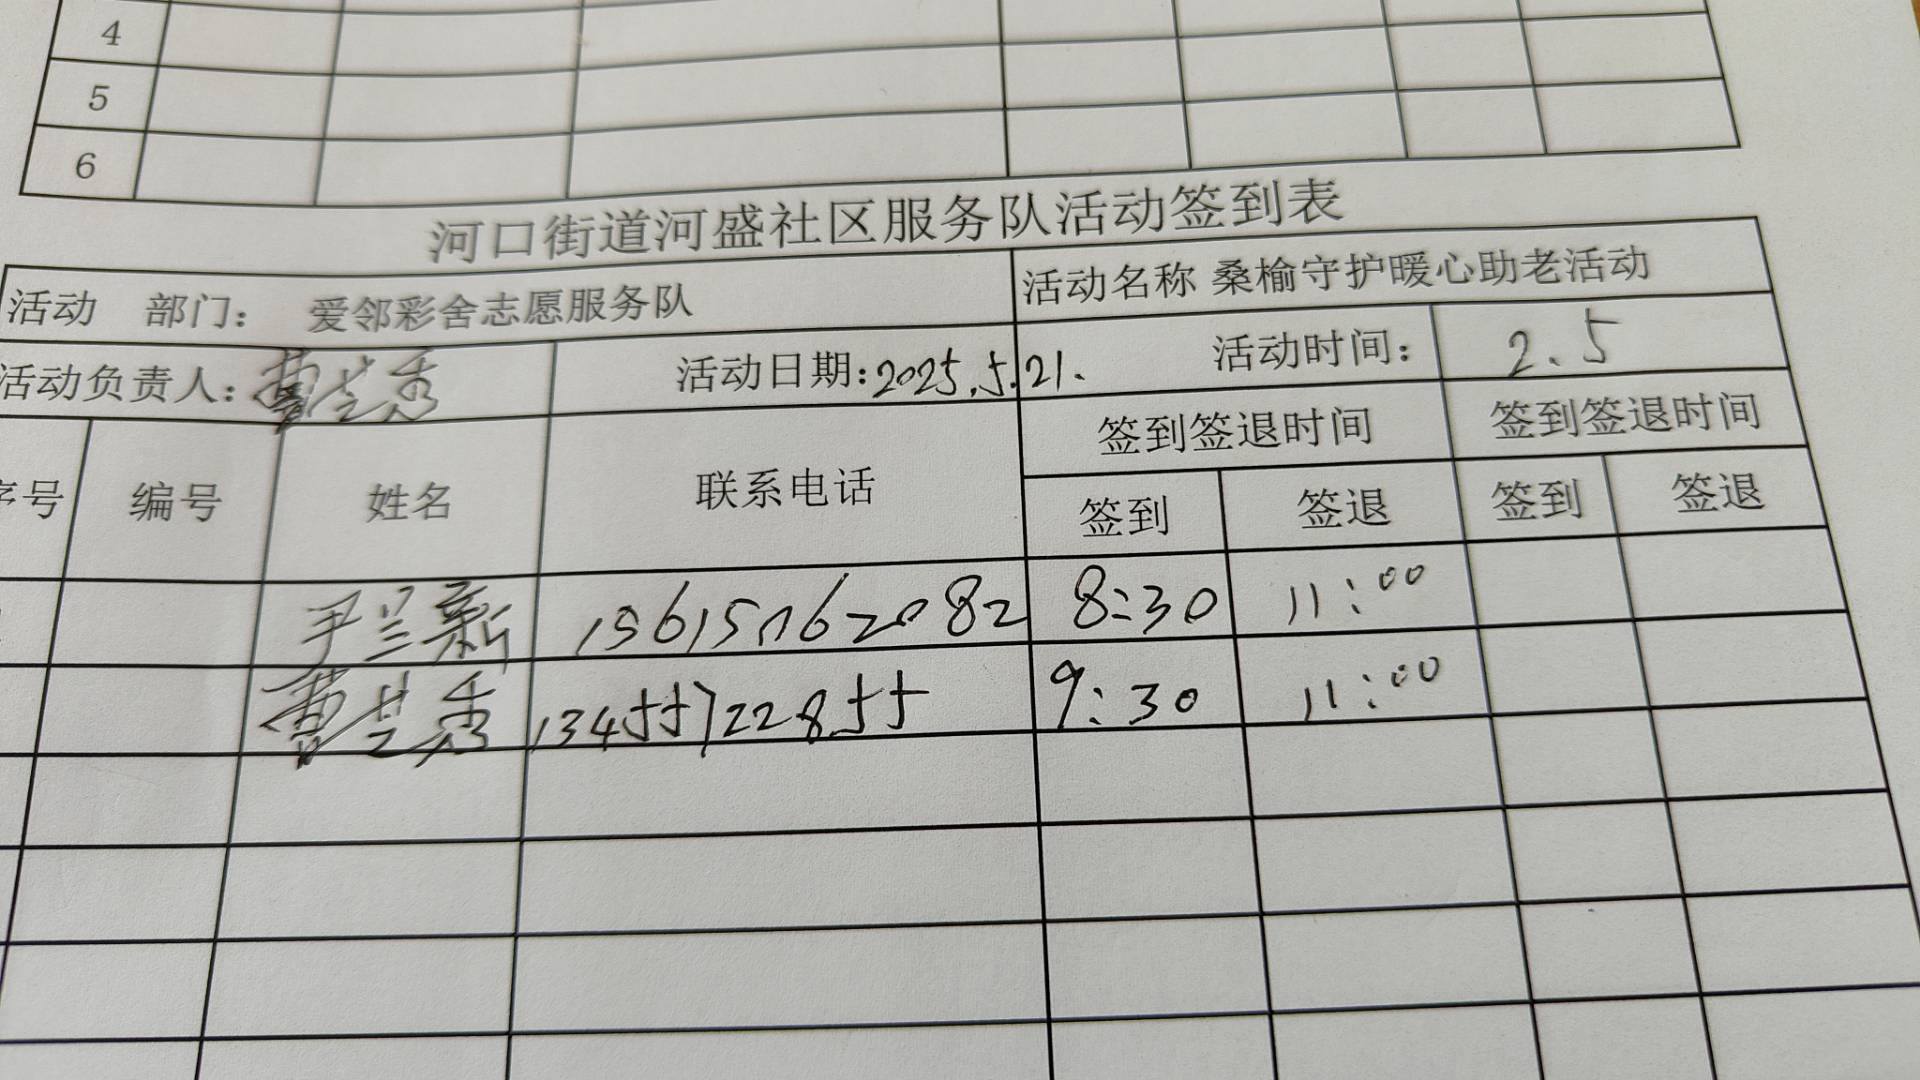 4
5
6
河口街道河盛社区服务队活动签到表
活动 部门： 爱邻彩舍志愿服务队 活动名称 桑榆守护暖心助老活动
活动负责人：曹芝秀 活动日期：2025.5.21. 活动时间： 2.5
序号 编号 姓名 联系电话 签到签退时间 签到签退时间
签到 签退 签到 签退
尹兰新 15615162082 8:30 11:00
曹芝秀 13455722855 9:30 11:00